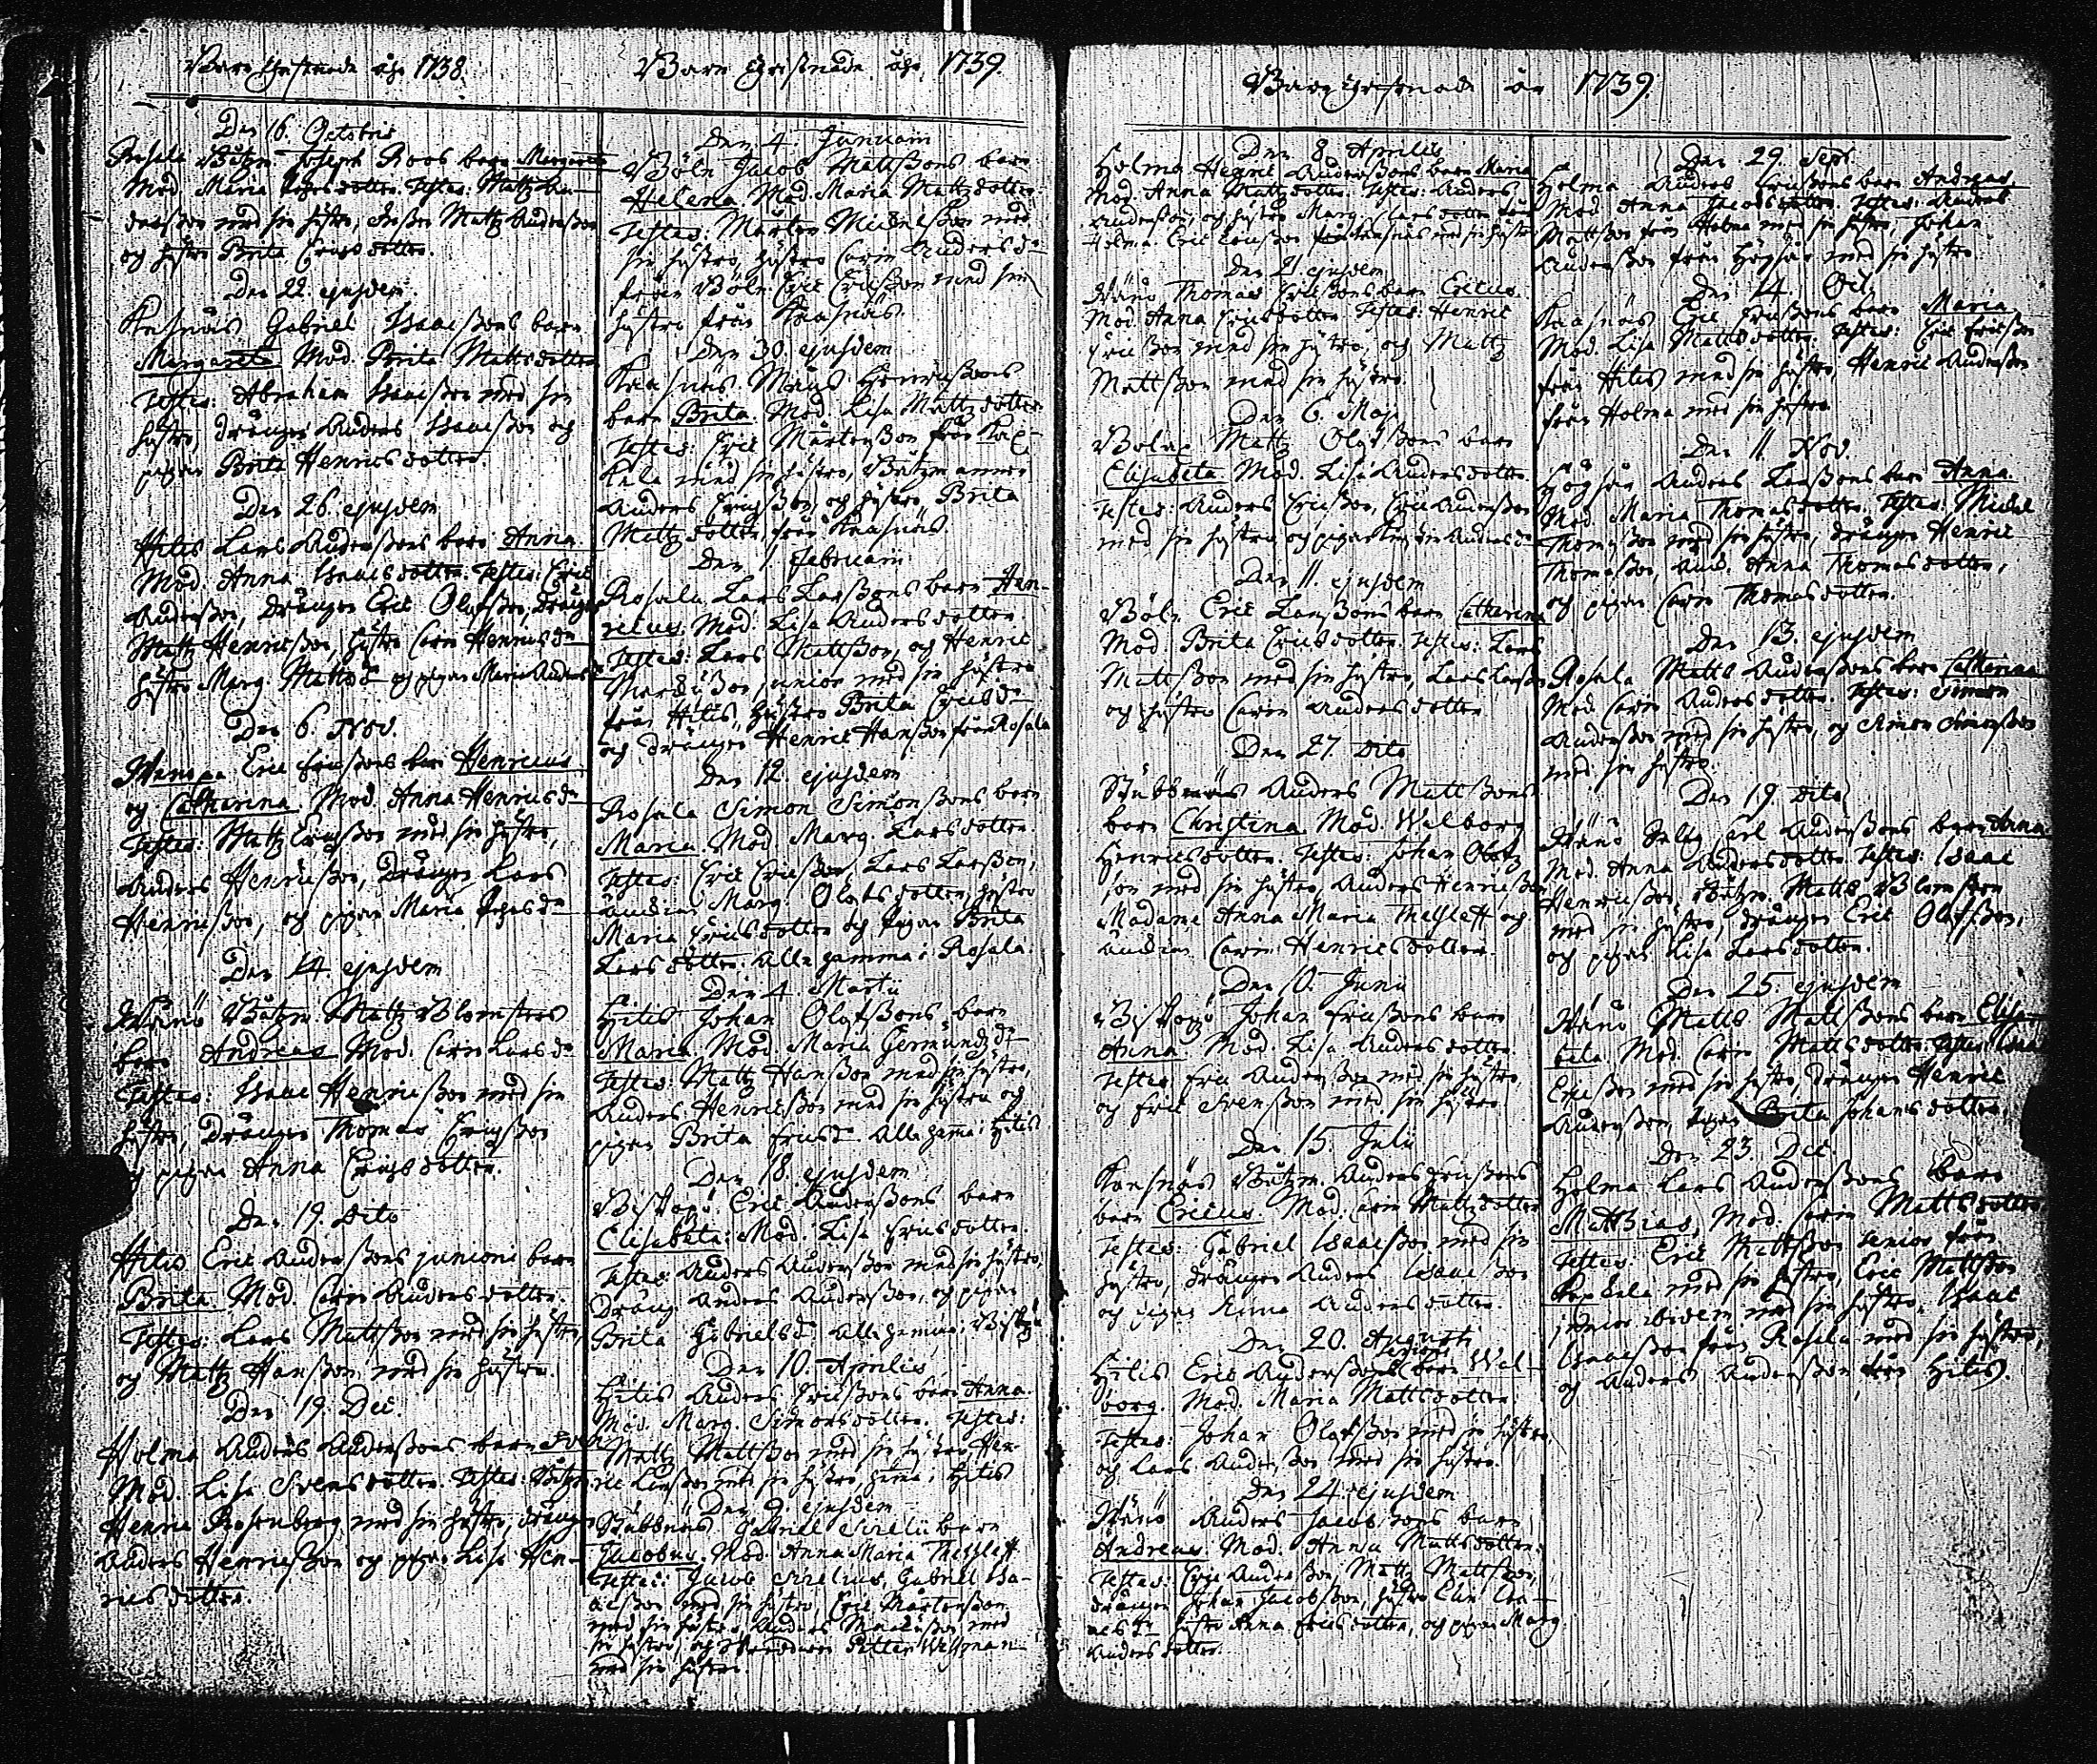 Barn Christnade åhr 1738.
Den 16. Octobris
Rosala Båtzm. Joseph Roos barn Margareta
Mod. Maria dotter. Testes: Mattz An-
dersson med sin hustro, Mattz Andersson
og hustro Brita Ericsdotter.
Den 22. ejusdem
Kasnäs Gabriel Isacssons barn
Margareta Mod. Brita Mattsdotter
Testes: Abraham Isacsson med sin
hustro, drängen Anders Isacsson och
pigan Brita Henricsdotter.
Den 26. ejusdem
Hitis Lars Anderssons barn Anna.
Mod. Anna Isacsdotter. Testes: Eric
Andersson, drängen Eric Olofsson, dräng
Mattz Henricsson, hustro Carin Henricsdr
hustro Marg. Mattsd. og pigan Maria Andersd.
Den 6. Nov.
Eric Ericssons barn Henricus
og Catharina Mod. Anna Henricsdr
Testes: Mattz Ericsson med sin hustro,
Anders Henricsson, drängen Lars
Henricsson, og pigan Maria
Den 14 ejusdem
Wänö Båtzm. Mattz Blomsters
barn Andreas Mod. Carin Larsdr
Testes: Isaac Henricsson med sin
hustro, drängen Thomas Ericsson
og pigan Anna Ericsdotter.
Den 19. dito
Hitis Eric Anderssons junioris barn
Brita Mod. Carin Andersdotter.
Testes: Lars Mattsson med sin hustro,
og Mattz Hansson med sin hustro.
Den 19. Dec.
Holma Anders Anderssons barn Sven
Mod. Lisa Svensdotter. Testes: Båtzm
Henric Rosenberg med sin hustro, drängen
Anders Henricsson og pigan Lisa Hen-
ricsdotter.
Barn Christnade åhr 1739.
Den 4. Januarii
Böle Jacob Mattssons barn
Helena Mod. Maria Mattzdotter.
Testes: Mårten Michelsson med
sin hustro, hustro Carin Andersdr
från Böle Eric Ericsson med sin
hustro från Kasnäs.
Den 30. ejusdem
Kasnäs Måns Henricssons
barn Brita. Mod. Lisa Mattzdotter
Testes: Eric Mårtensson från
med sin hustro, Båtzmannen
Anders Ericsson, og hustro Brita
Mattzdotter, från Kasnäs.
Den 1. Februarii
Rosala Lars Larssons barn Hen-
ricus. Mod. Lisa Andersdotter.
Testes: Lars Mattsson, og Henric
junior med sin hustro
från Hitis, hustro Brita Ericsdr
og drängen Henric Hansson från Rosala
Den 12. ejusdem
Rosala Simon Simonssons barn
Maria Mod. Marg. Larsdotter.
Testes: Eric Ericsson, Lars Larsson,
Marg. Olofsdotter, hustro
Maria Ericsdotter og pigan Brita
Larsdotter. Alla hemma i Rosala.
Den 4 Martii
Hitis Johan Olofssons barn
Maria. Mod. Maria Germundzdr
Testes: Mattz Hansson med sin hustro,
Anders Henricsson med sin hustro og
pigan Brita Ericsdr. Alla hema i Hitis
Den 18. ejusdem
Biskopzö Eric Anderssons barn
Elisabeta. Mod. Lisa Ericsdotter.
Testes: Anders Andersson med sin hustro,
dräng. Anders Andersson, og pigan
Brita Gabrielsdr. Alla hemma i Biskopzö
Den 10. Aprilis
Hitis Anders Ericssons barn Anna.
Mod. Marg. Simonsdotter. Testes:
Mattz Mattsson med sin hustro, Hen-
ric Larsson med sin hustro, hema i Hitis
Den 9. ejusdem
Stubbnäs Gabriel Sirelii barn
Jacobus. Mod. Anna Maria Thesleff.
Testes: Jacob Sirelius, Gabriel Isa-
acsson med sin hustro, Eric Mårtensson
med sin hustro, Anders med
sin hustro, og Petter Wessman
med sin hustro.
Barn Christnade år 1739.
Den 8 Aprilis
Holma Henric Anderssons barn Maria
Mod. Anna Mattzdotter. Testes: Anders
Andersson, og hustro Marg. Larsdotter från
Holma. Eric Ericsson från Kasnäs med sin hustro
Den 21 ejusdem
Wänö Thomas Ericssons barn Ericus.
Mod. Anna Ericsdotter. Testes: Henric
Ericsson med sin hustro, og Mattz
Mattsson med sin hustro.
Den 6. Maji
Mattz Olofssons barn
Elisabeta Mod. Lisa Andersdotter.
Testes: Anders Ericsson, Eric Andersson
med sin hustro og pigan Andersdr
Den 11. ejusdem
Böle Eric Larssons barn Catharina
Mod. Brita Ericsdotter. Testes: Lars
Mattsson med sin hustro, Lars Larsson
og hustro Carin Andersdotter.
Den 27. dito
Stubbnäs Anders Mattssons
barn Christina Mod. Walborg
Henricsdotter. Testes: Johan Olofz
son med sin hustro, Anders Henricsson
Madame Anna Maria Thesleff og
Carin Henricsdotter.
Den 10. Junii
Biskopzö Johan Ericssons barn
Anna Mod. Lisa Andersdotter.
Testes Eric Andersson med sin hustro
og Eric Svensson med sin hustro
Den 15. Julii
Kasnäs Båtzm. Anders Ericssons
barn Ericus. Mod. Carin Mattzdotter
Testes: Gabriel Isaacsson med sin
hustro, drängen Anders Isaacsson
og pigan Anna Andersdotter.
Den 20. Augusti
Hitis Eric Anderssons senioris barn Wal-
borg. Mod. Maria Mattsdotter
Testes: Johan Olofsson med sin hustro,
og Lars Andersson med sin hustro.
Den 24. ejusdem
Wänö Anders Jacobssons barn
Andreas. Mod. Anna Mattsdotter.
Testes: Eric Andersson, Mattz Mattsson,
drängen Johan Jacobsson, hustro Elin
hustro Anna Ericsdotter, og pigan Marg.
Andersdotter.
Den 29. Sept.
Holma Anders Ericssons barn Andreas
Mod. Anna Jacobsdotter. Testes: Anders
Mattsson från Holma med sin hustro, Johan
Andersson från Högsår med sin hustro.
Den 14. Oct.
Kasnäs Eric Ericssons barn Maria
Mod. Lisa Mattsdotter. Testes: Eric Ericsson
från Hitis med sin hustro, Henric Andersson
från Holma med sin hustro.
Den 11. Nov.
Högsår Anders Larssons barn Anna.
Mod. Maria Thomasdotter. Testes: Michel
Thomasson med sin hustro, drängen Henric
Thomasson, Anna Thomasdotter,
og pigan Carin Thomasdotter.
Den 13. ejusdem
Rosala Matts Anderssons barn Catharina
Mod. Carin Andersdotter. Testes: Simon
Andersson med sin hustro, og Simon Simonsson
med sin hustro.
Den 19. dito
Wänö Carl Anderssons barn Anna
Mod. Anna Andersdotter. Testes: Isaac
Henricsson, Båtzm. Matts Blomster
med sin hustro, drängen Eric Olofsson,
og pigan Lisa Larsdotter.
Den 25. ejusdem
Wänö Matts Mattssons barn Elisa-
beta. Mod. Carin Mattsdotter. Testes Isaac
Ericsson med sin hustro, drängen Henric
Andersson, pigan Brita Johansdotter.
Den 23. Dec.
Holma Lars Anderssons barn
Matthias, Mod. Carin Mattsdotter
Testes: Eric Mattsson senior från
med sin hustro, Eric Mattsson
junior ibidem med sin hustro, Isaac
Isaacsson från Rosala med sin hustro,
og Anders Andersson från Hitis.